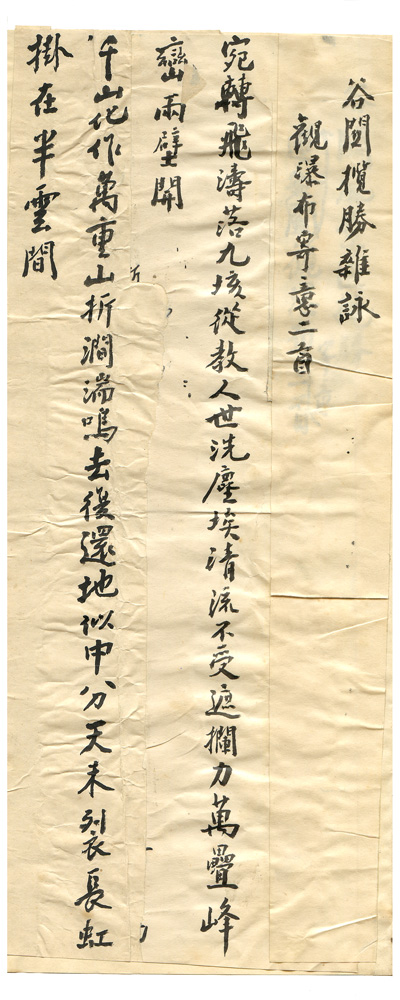 谷關攬勝雜詠
觀瀑布寄意二首
宛轉飛濤落九垓從教人世洗塵埃清流不受遮攔力萬疊峰
巒兩壁開
千山化作萬重山折澗湍鳴去復還地似中分天未裂長虹
掛在半雲間